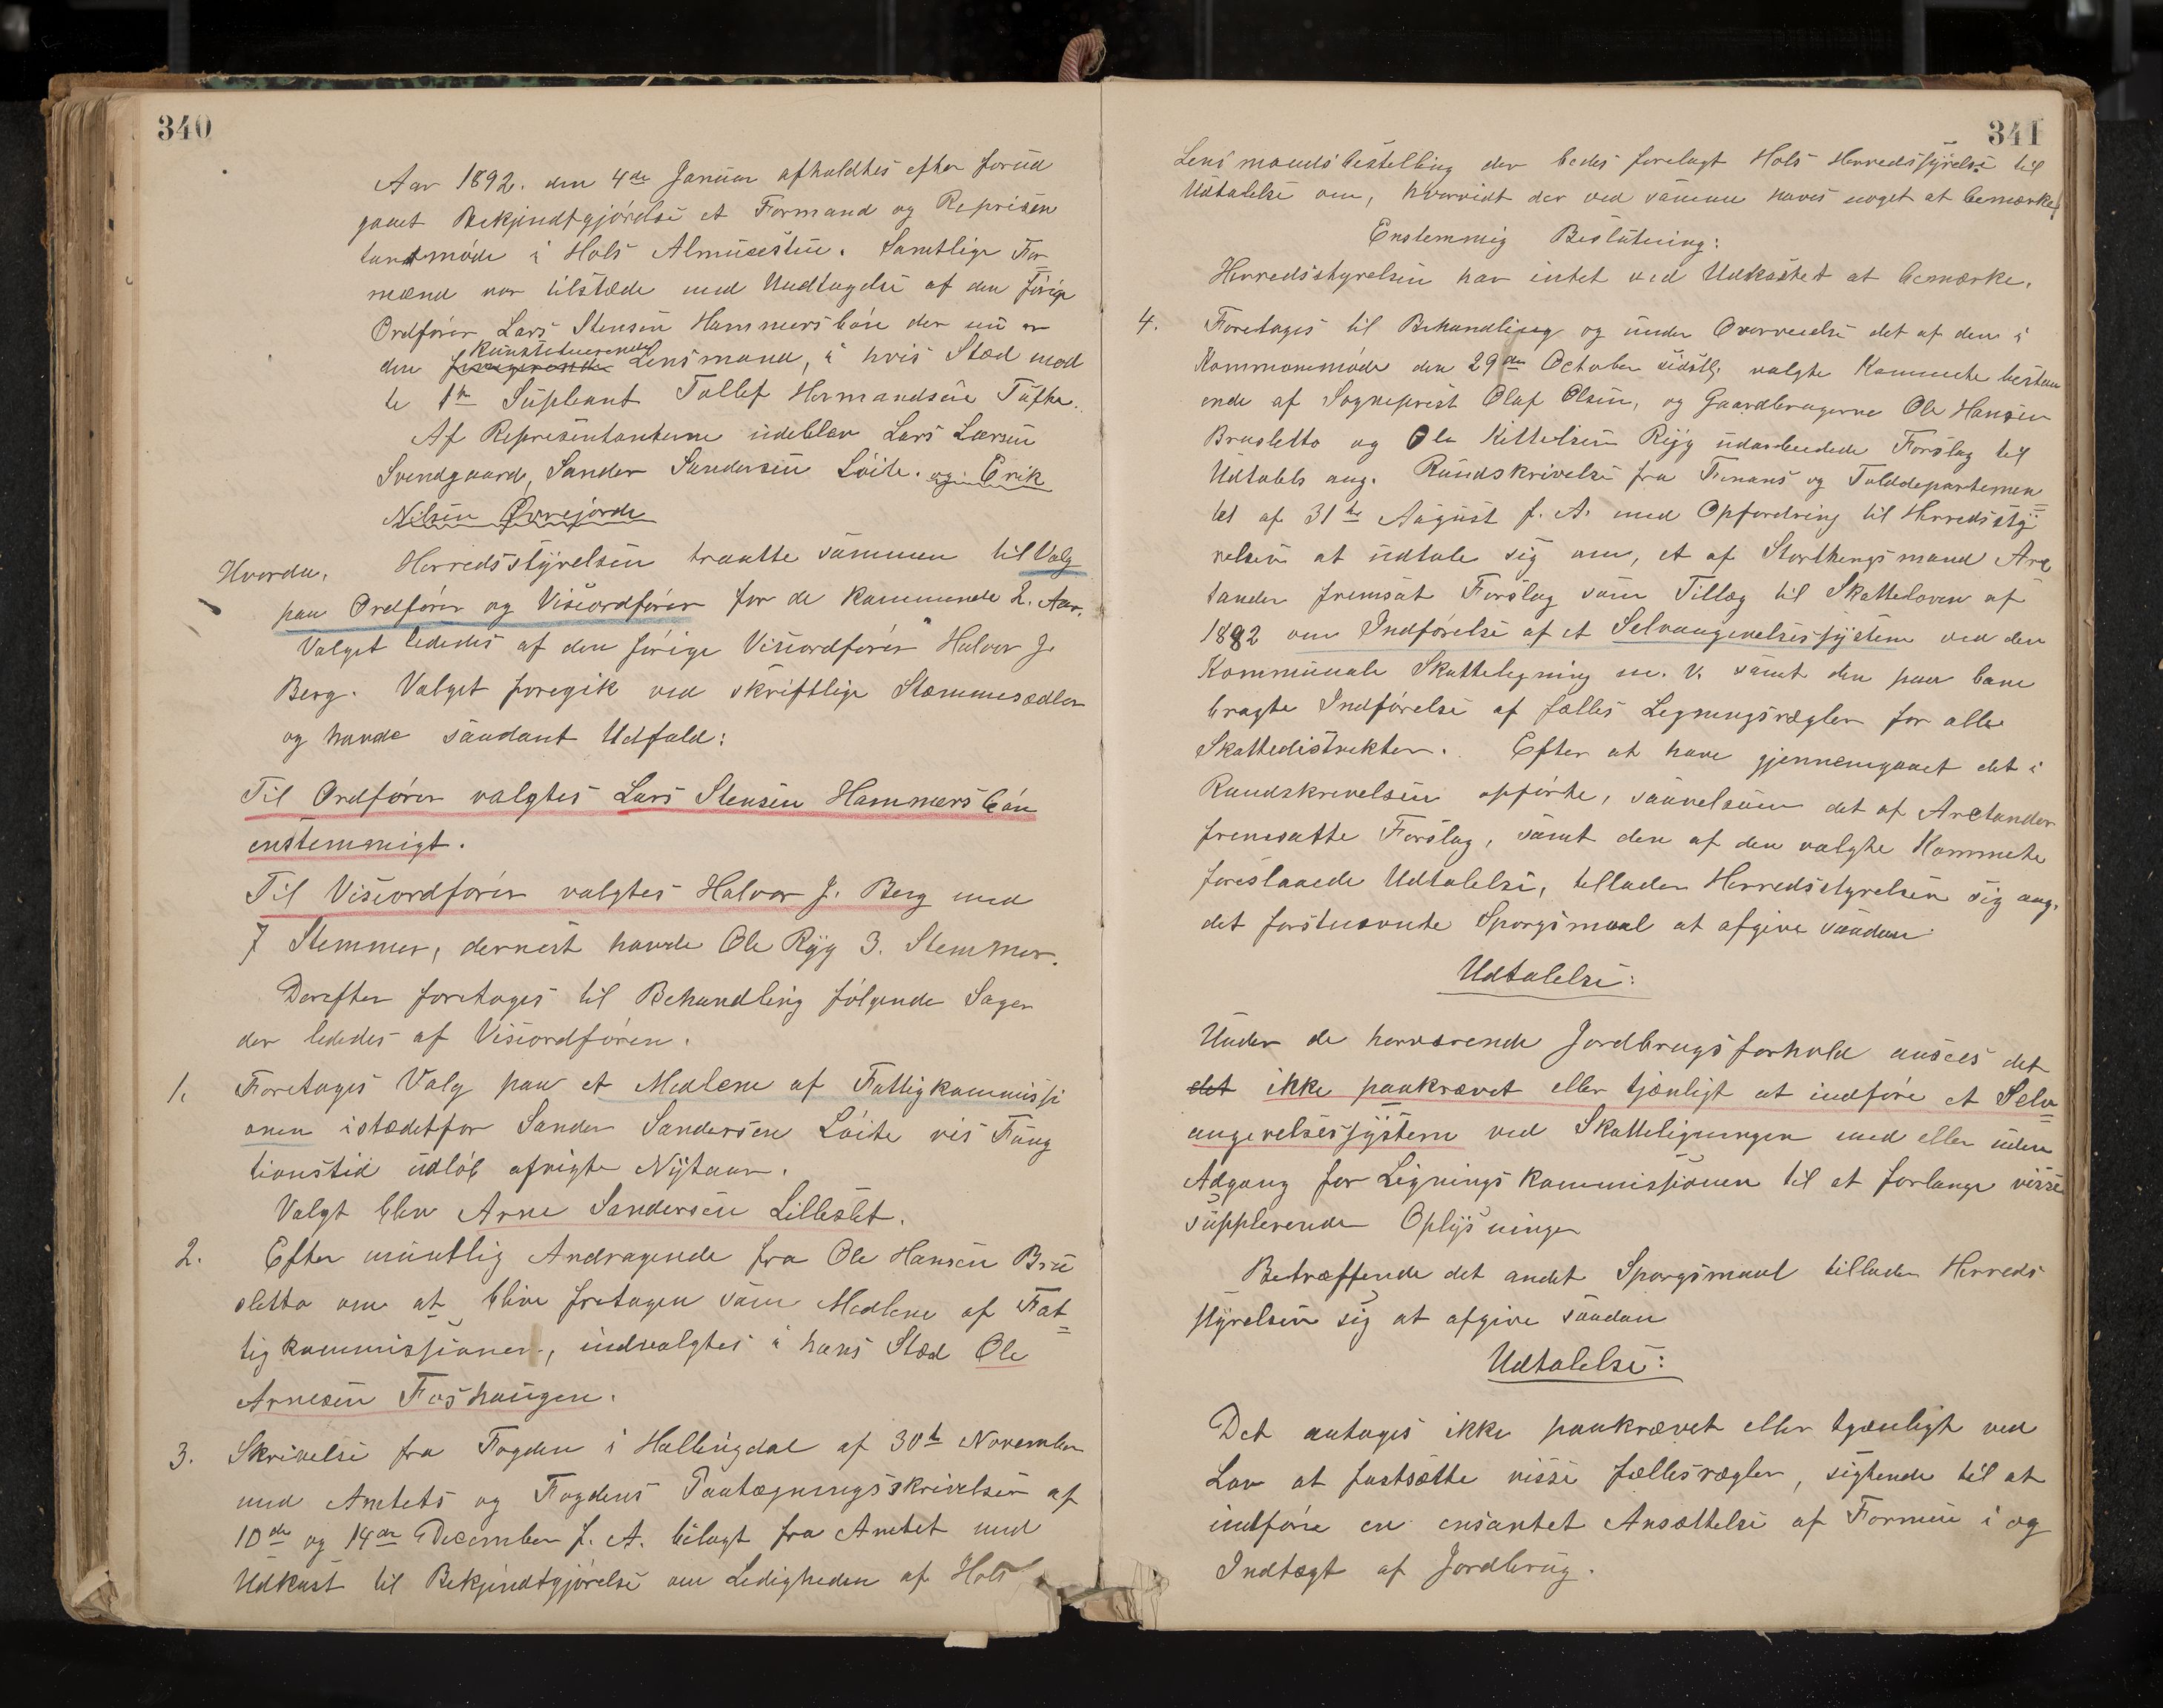 340
Aar 1892. den 4de Januar afholdtes efter forud
gaaet Bekjendtgjørelse et Formand og Represen
tantmøde i Hols Almuestue. Samtlige For
mænd var tilstæde med Undtagelse af den forige
Ordfører Lars Stensen Hammersbøn der nu er
konstituerende
den Lensmand, i hvis Stæd mød
te 1ste Supleant Tollef Hermandsen Tufte.
Af Representanterne udeblev Lars Larsen
Svendgaard, Sander Sandersen Løite. og Erik
Nilsen Øvrejorde
Hvorda. Herredsstyrelsen traatte sammen til Valg
paa Ordfører og Viseordfører for de kommende 2. Aar.
Valget lededes af den forige Viseordfører Halvor J.
Berg. Valget foregik ved skriftlige Stæmmesedler
og havde saadant Udfald:
Til Ordfører valgtes Lars Stensen Hammersbøn
enstemmigt.
Til Viseordfører valgtes Halvor J. Berg med
7 Stemmer, dernest havde Ole Rÿg 3. Stemmer.
Derefter foretages til Behandling følgende Sager
der lededes af Viseordføren.
1. Foretages Valg paa et Medlem af Fattigkommissi
onen istædetfor Sander Sandersen Løite vis Fung
tionstid udløb afvigte Nytaar.
Valgt blev Arne Sandersen Lilleslet.
2. Efter muntlig Andragende fra Ole Hansen Bru
sletto om at blive fretagen som Medlem af Fat=
tigkommissionen, indvalgtes i hans Stæd Ole
Arnesen Foshaugen.
3. Skrivelse fra Fogden i Hallingdal af 30te November
med Amtets og Fogdens Paategningsskrivelser af
10de og 14de December f. A. bilagt fra Amtet med
Udkast til Bekjendtgjørelse om Ledigheden af Hols
341
Lensmandsbestelling der bedes forelagt Hols Herredsstyrelse til
Udtalelse om, hvorvidt der ved samme haves noget at bemærke.
Enstemmig Beslutning:
Herredsstyrelsen har intet ved Udkastet at bemærke.
4. Foretages til Behandling og under Overveielse det af den i
Kommunemøde den 29de October sidstl. valgte Kommite bestaa
ende af Sogneprest Olaf Olsen, og Gaardbrugerne Ole Hansen
Brusletto og Ole Kittelsen Rÿg udarbeidede Forslag til
Udtalels ang. Rundskrivelse fra Finans og Tolddepartemen=
tet af 31te August f. A. med Opfordring til Herredssty=
relsen at udtale sig om, et af Storthingsmand Arc
tander fremsat Forslag som Tillæg til Skatteloven af
1882 om Indførelse af et Selvangivelsessystem ved den
Kommunale Skattelegning m. V. samt den paa bane
bragte Indførelse af fælles Legningsregler for alle
Skattedistrikter. Efter at have gjennemgaaet det i
Rundskrivelsen opførte, saavelsom det af Arctander
fremsatte Forslag, samt den af den valgte Kommite
foreslaaede Udtalelse, tillader Herredsstyrelsen sig ang.
det førstnævnte Spørgsmaal at afgive saadan
Udtalelse:
Under de herværende Jordbrugsforhold ansees det
det ikke paakrævet eller tjænligt at indføre et Selv=
angivelsessystem ved Skatteligningen med eller uden
Adgang for Ligningskommissionen til at forlange visse
supplerende Oplysninger
Betræffende det andet Spørgsmaal tillader Herreds
styrelsen sig at afgive saadan
Udtalelse:
Det antages ikke paakrævet eller tjænligt ved
Lov at fastsætte visse fællesregler, sigtende til at
indføre en ensartet Ansættelse af Formue i og
Indtægt af Jordbrug.